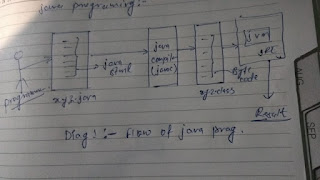 java programming:-
java
compiler
(javac)
jvm
Programmer
xyz.java
xyz.class
Byte
code
Result
Diag:- flow of java prog.
AUG
SEP